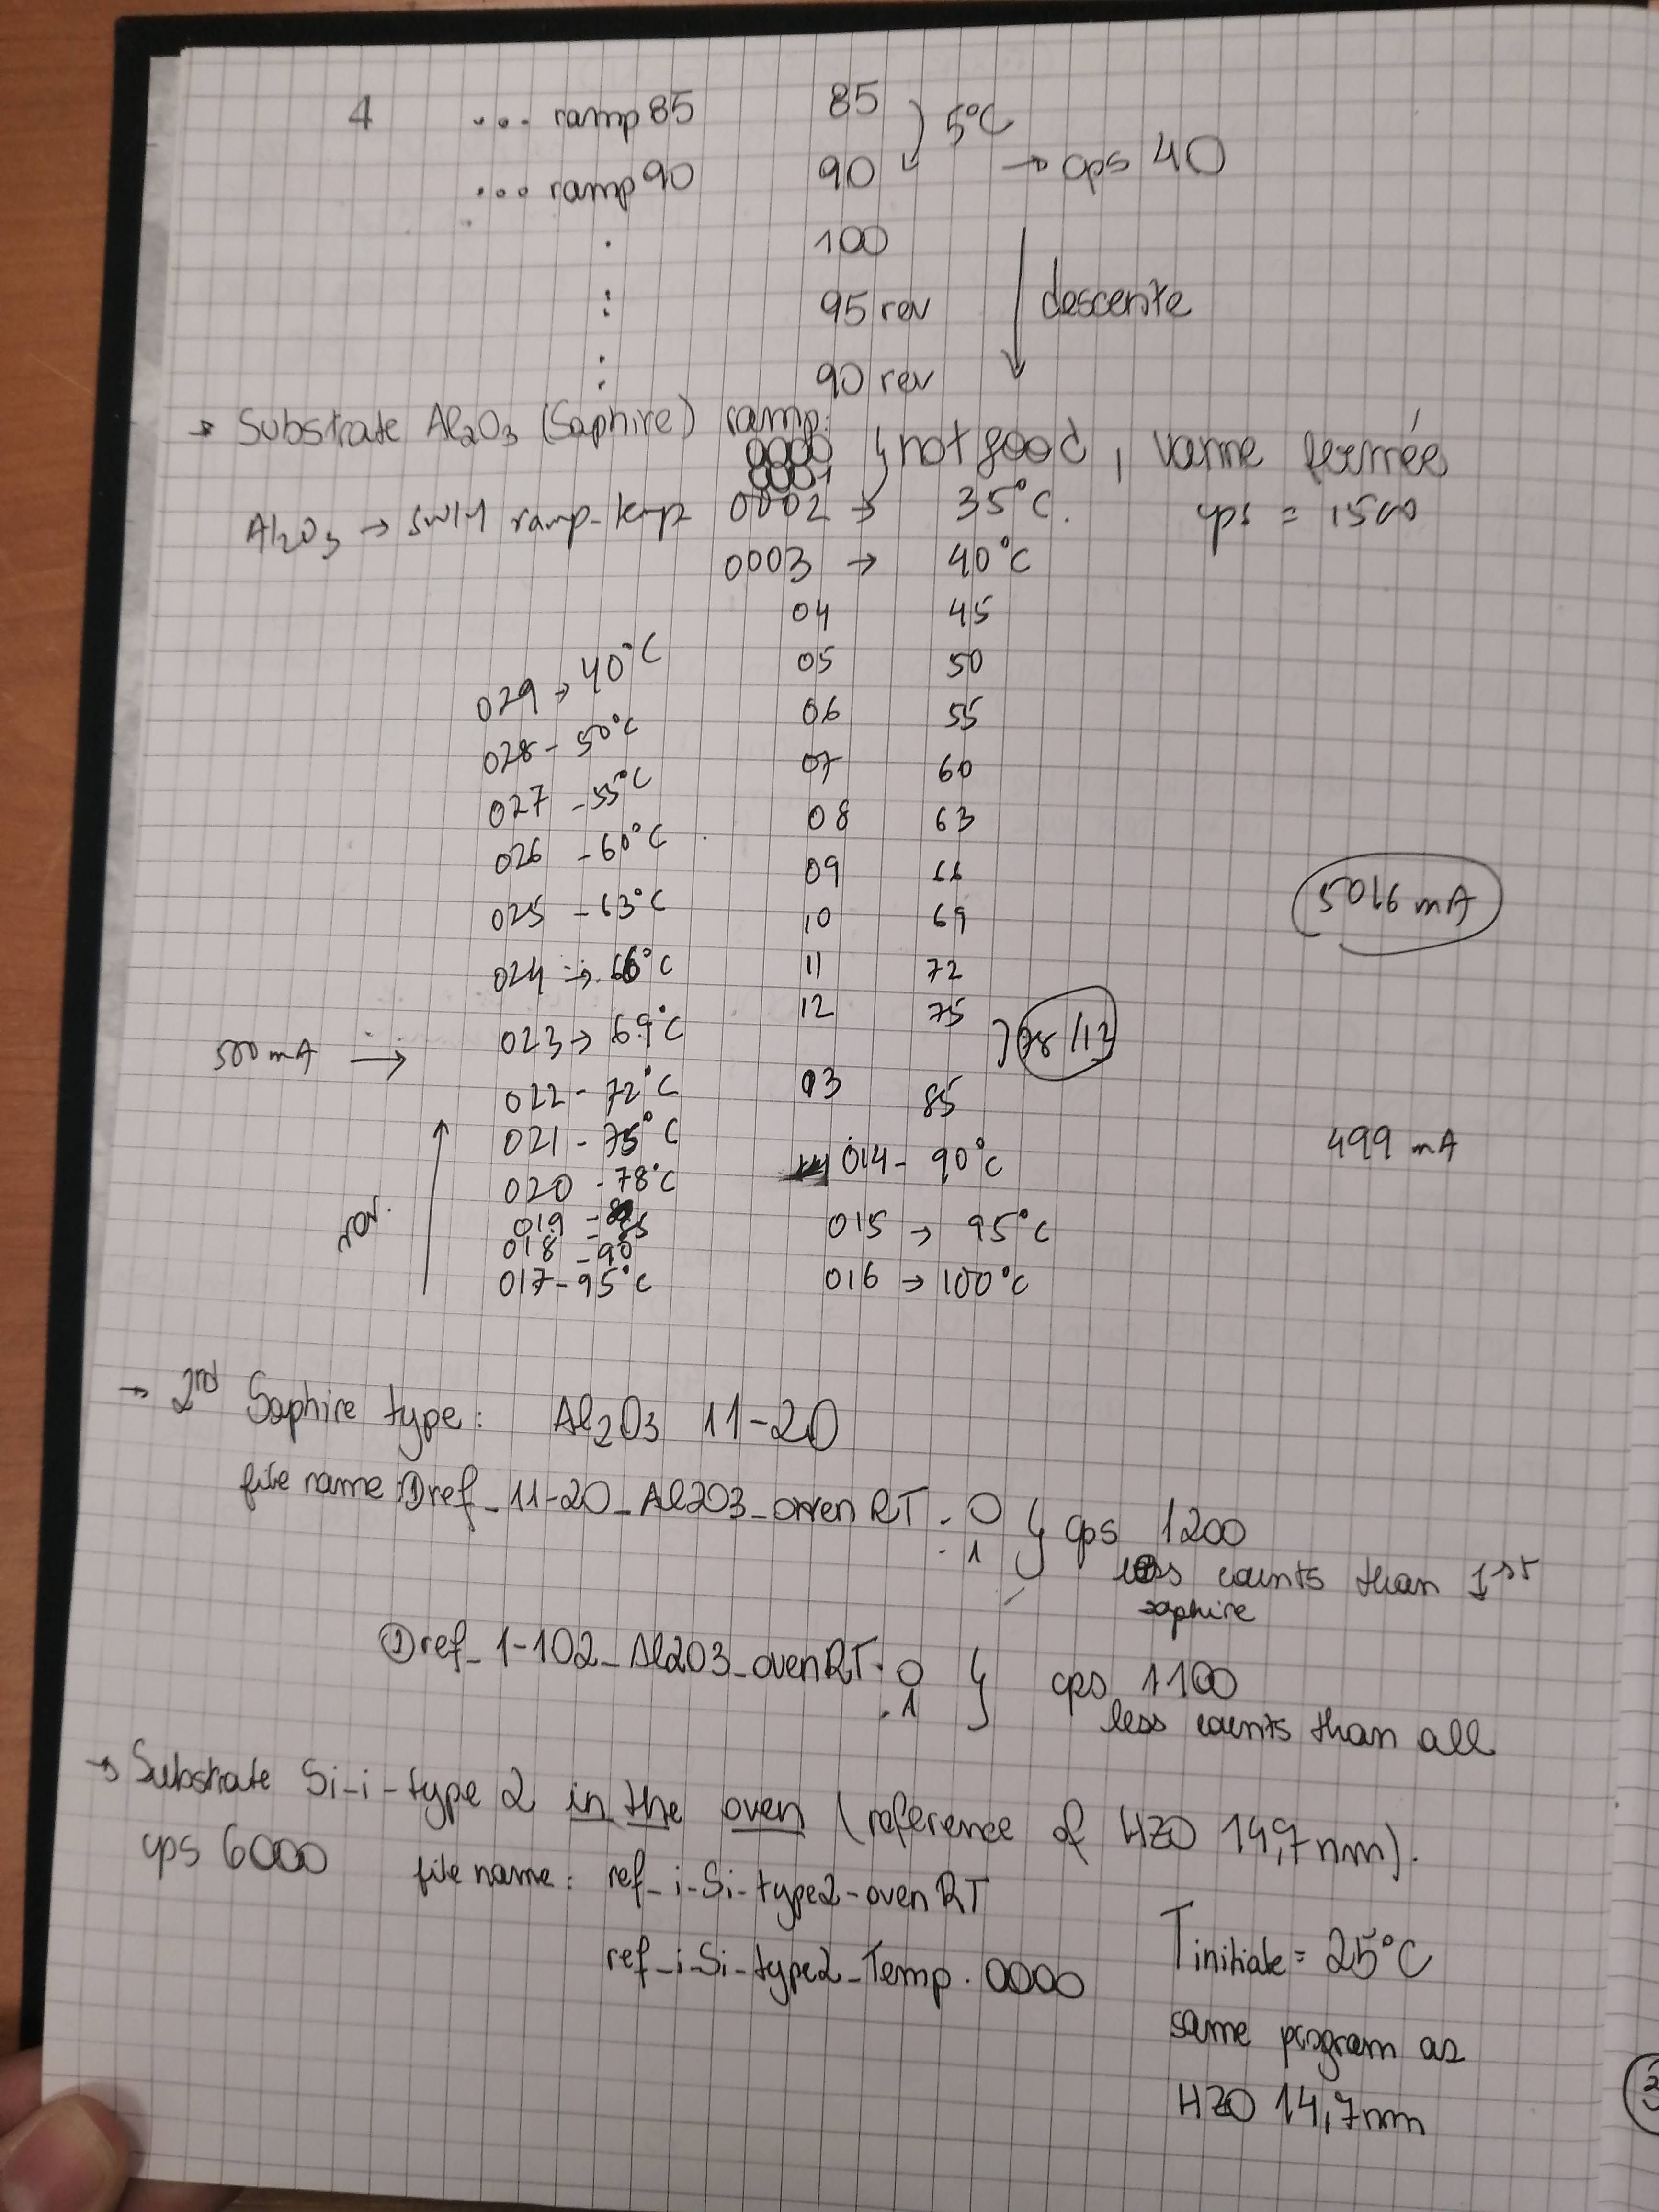 4 ... ramp 85 85 5°C
... ramp 90 90 → cps 40
. 100
: 95 rev descente
: 90 rev
→ Substrate Al2O3 (Saphire) ramp:
0000 } not good, vanne fermée
0001
Al2O3 → ramp-temp 0002 → 35°C. cps = 1500
0003 → 40°C
04 45
05 50
06 55
07 60
08 63
09 66
10 69
11 72
12 75
78/13
03 85
014 - 90°C
015 → 95°C
016 → 100°C
029 → 40°C
028 - 50°C
027 - 55°C
026 - 60°C
025 - 63°C
024 → 66°C
500 mA → 023 → 69°C
022 - 72°C
021 - 75°C
020 - 78°C
019 - 85
018 - 90
017 - 95°C
rev.
5016 mA
499 mA
→ 2nd Saphire type: Al2O3 11-20
file name: ① ref_11-20_Al2O3_oven RT. 0 } cps 1200
. 1
less counts than 1st
saphire
② ref_1-102_Al2O3_oven RT. 0 } cps 1100
. 1
less counts than all
→ Substrate Si-i-type 2 in the oven (reference of HZO 14,7nm).
cps 6000 file name: ref_i-Si-type2-oven RT
ref_i-Si-type2_Temp. 0000
T initiale = 25°C
same program as
HZO 14,7nm